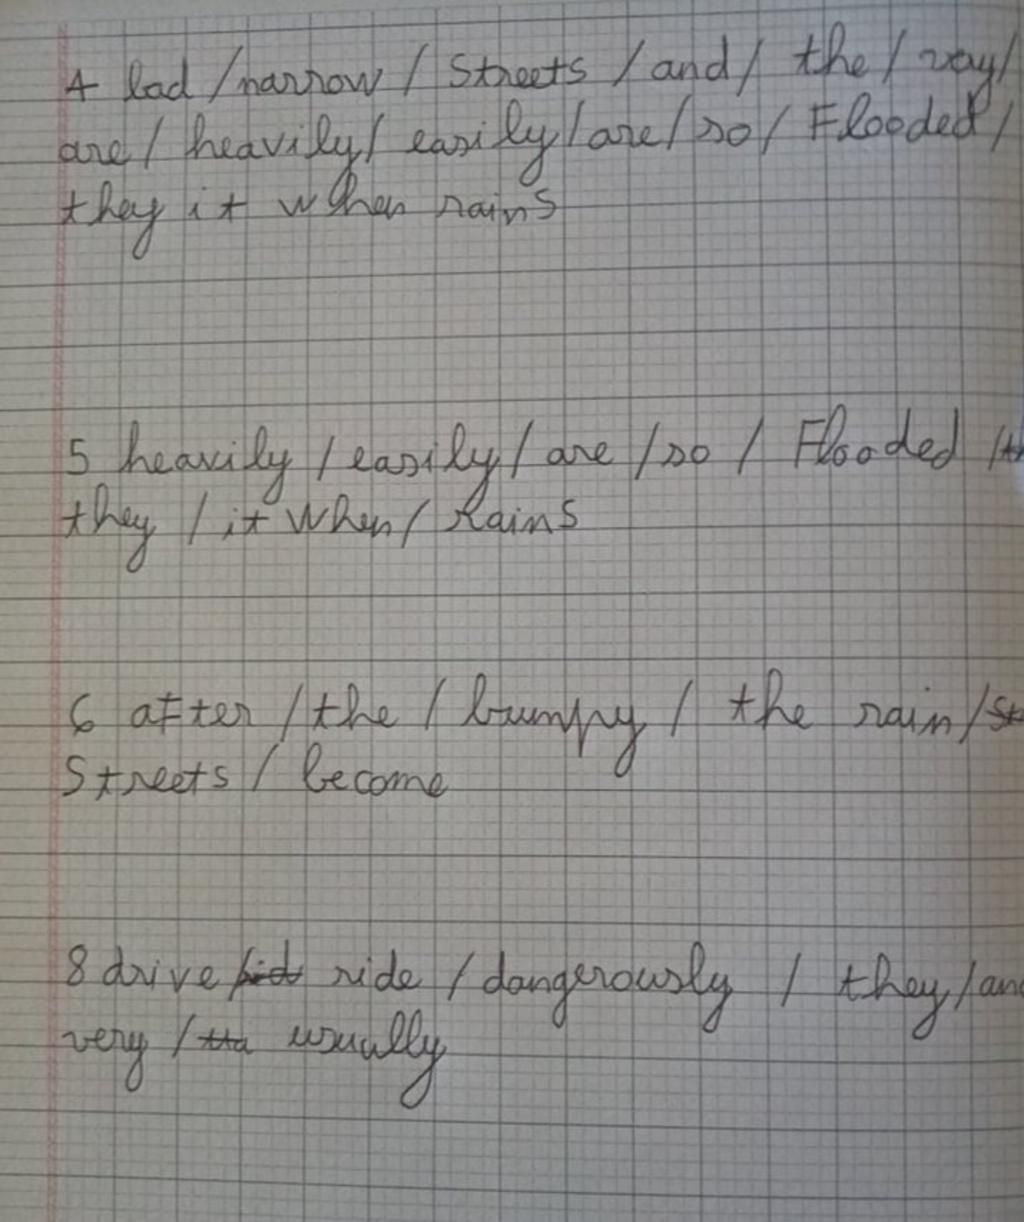 4 bad / narrow / Streets / and / the / very /
are / heavily / easily / are / so / Flooded /
they it when rains
5 heavily / easily / are / so / Flooded /
they / it When / Rains
6 after / the / bumpy / the rain /
Streets / become
8 drive ride / dangerously / they /
very / usually